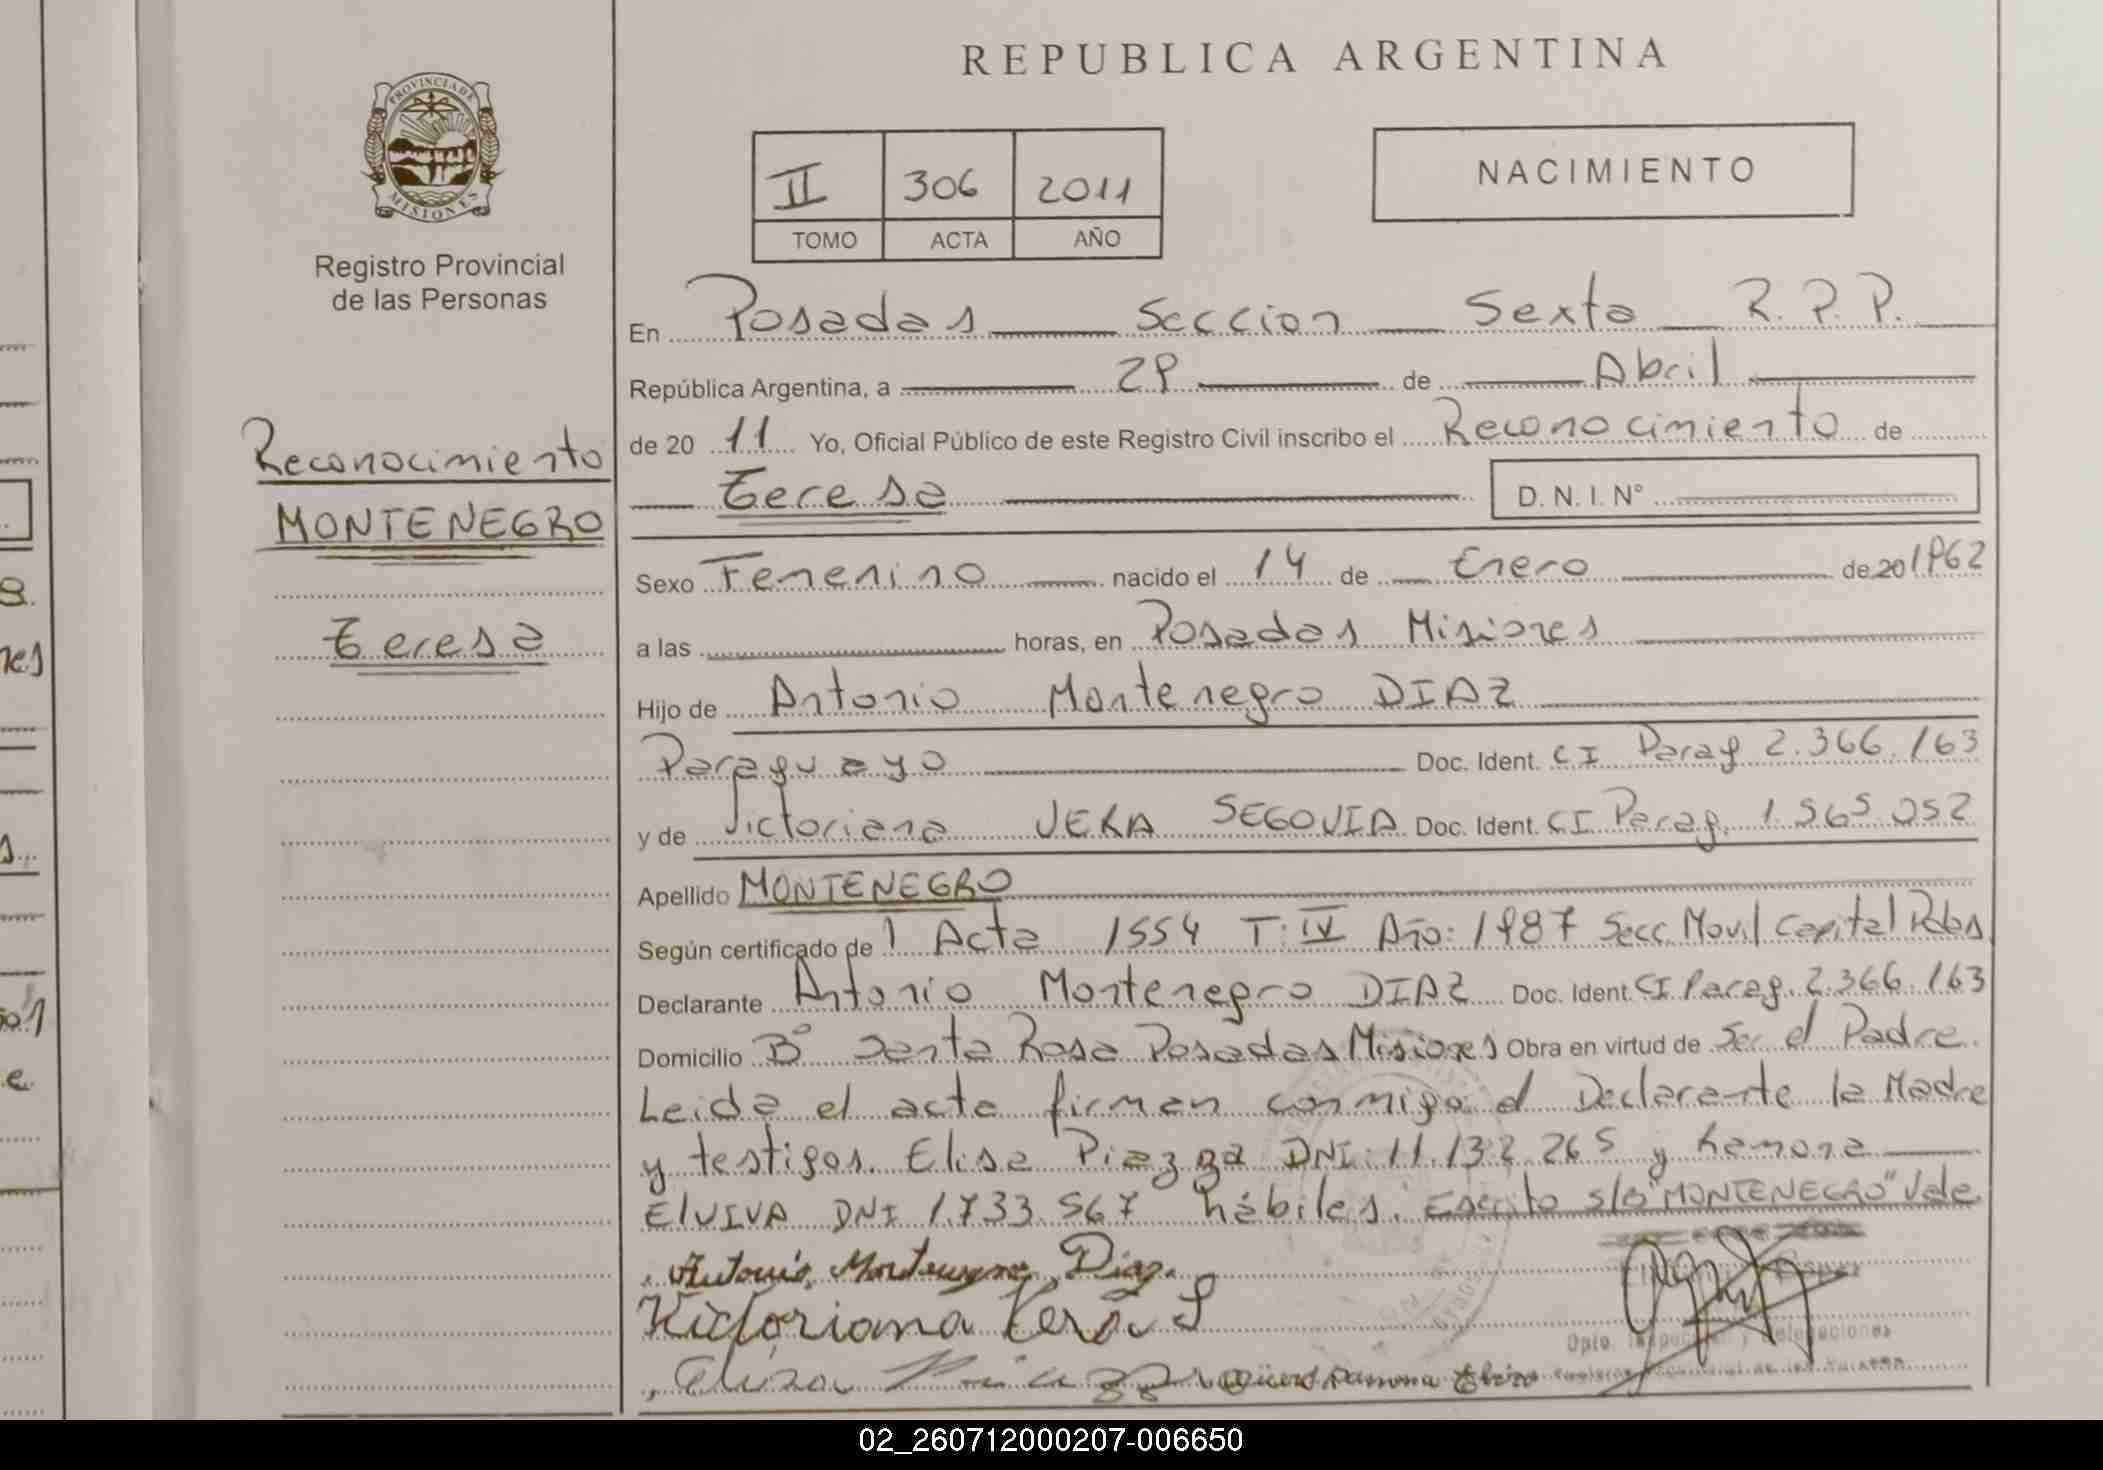 REPUBLICA ARGENTINA
PROVINCIA DE
MISIONES
Registro Provincial
de las Personas
II 306 2011
TOMO ACTA AÑO
NACIMIENTO
En Posadas Seccion Sexta R.P.P.
República Argentina, a 29 de Abril
de 20 11 Yo, Oficial Público de este Registro Civil inscribo el Reconocimiento de
Teresa D.N.I. N°
Reconocimiento
MONTENEGRO
Teresa
Sexo Femenino nacido el 14 de Enero de 20 1962
a las horas, en Posadas Misiones
Hijo de Antonio Montenegro DIAZ
Paraguayo Doc. Ident. CI Parag 2.366.163
y de Victoriana VERA SEGOVIA Doc. Ident. CI Parag. 1.565.052
Apellido MONTENEGRO
Según certificado de Acta 1554 T: IV Año: 1987 Secc. Movil Capital Pdas
Declarante Antonio Montenegro DIAZ Doc. Ident. CI Parag. 2.366.163
Domicilio B° Santa Rosa Posadas Misiones Obra en virtud de Ser el Padre.
Leida el acta firman conmigo el Declarante la Madre
y testigos. Elisa Piazza DNI: 11.132.265 y Ramona
DNI 1.733.567 hábiles. Escrito s/b "MONTENEGRO" Vale
Antonio Montenegro Diaz
Victoriana Vera S
Ramona
02_260712000207-006650